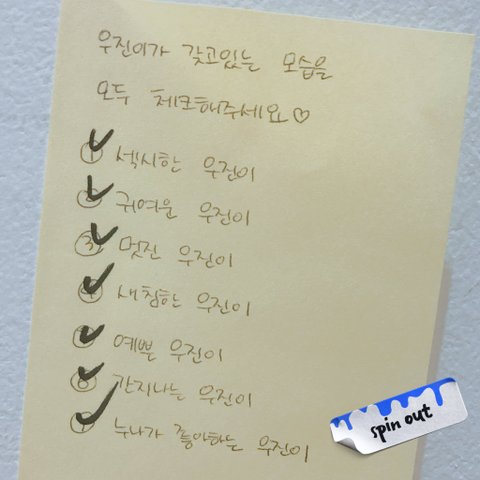 우진이가 갖고있는 모습을
모두 체크해주세요♡
① 섹시한 우진이
② 귀여운 우진이
③ 멋진 우진이
④ 새침한 우진이
⑤ 예쁜 우진이
⑥ 간지나는 우진이
⑦ 누나가 좋아하는 우진이
spin out